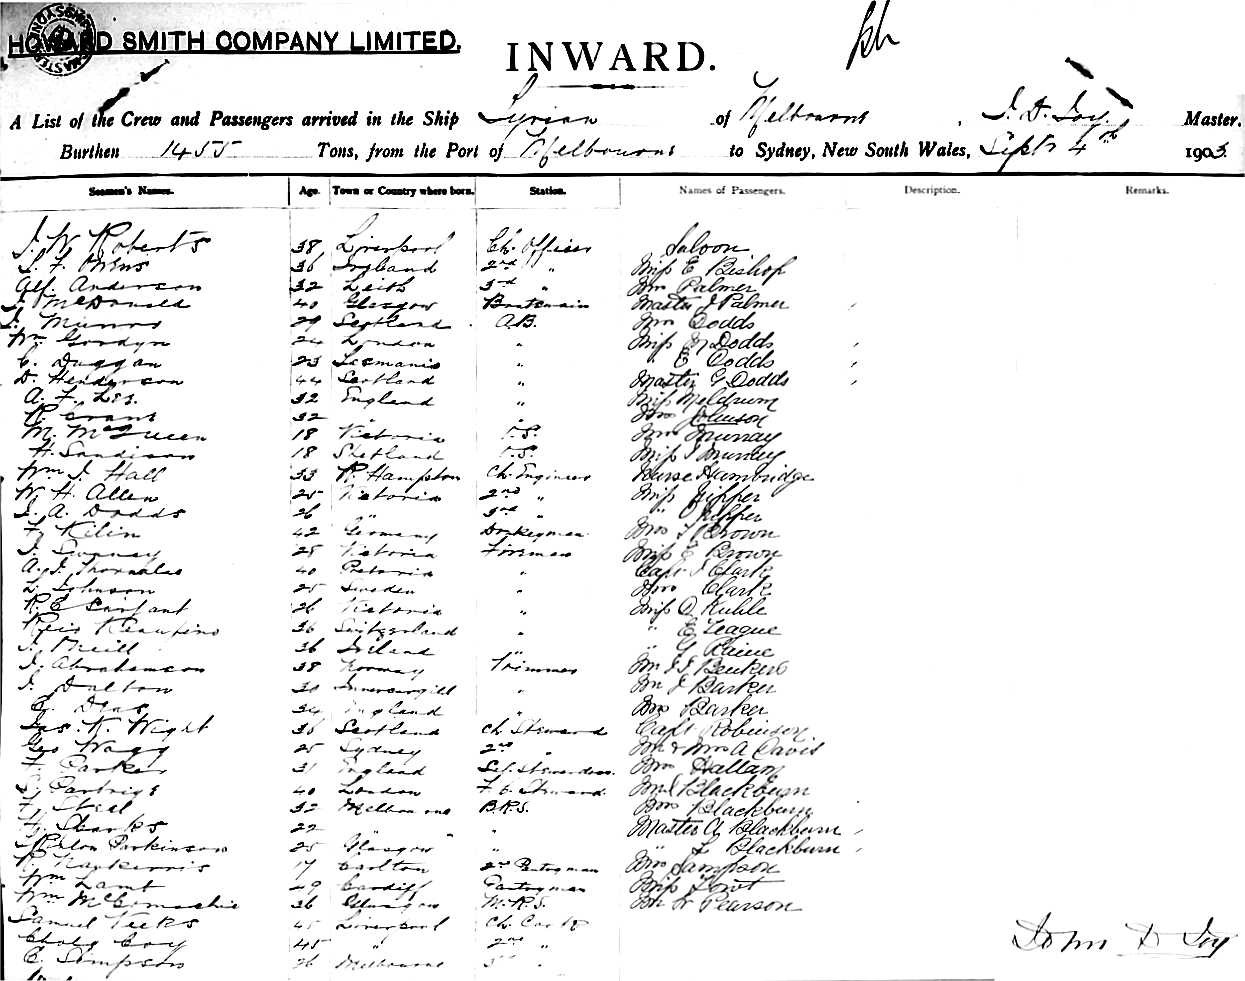 HOWARD SMITH COMPANY LIMITED.
INWARD.
A List of the Crew and Passengers arrived in the Ship Syrian of Melbourne, J. D. Joy. Master.
Burthen 1455 Tons, from the Port of Melbourne to Sydney, New South Wales, Septr 4th 1903.
Seamen's Names. Age. Town or Country where born. Station. Names of Passengers. Description. Remarks.
J. W. Roberts 38 Liverpool Ch. Officer Saloon
36 England 2nd " Miss E Bishop
Alf. Anderson 32 Leith 3rd " Mrs Palmer
J. McDonald 40 Glasgow Boatswain Master J Palmer
J. Munro 29 Scotland A.B. Mrs Dodds
Wm Gordyn 24 London " Miss Dodds
C. Duggan 23 Tasmania " " E Dodds
D. Henderson 44 Scotland " Master G Dodds
A. F. 32 England " Miss Meldrum
R Evans 32 " " Mrs Johnson
M. McQueen 18 Victoria O.S. Mrs Murray
H. Sandison 18 Shetland O.S. Miss J Murray
Wm. J. Hall 33 Hampton Ch. Engineer Nurse Hambridge
W. H. Allen 25 Victoria 2nd " Miss Jipper
J. A. Dodds 26 " 3rd " " Jipper
42 Germany Donkeyman Mrs J Brown
25 Victoria Fireman Miss E Brown
40 " Capt J Clark
Johnson 25 Sweden " Mrs Clark
R. E. 26 Victoria " Miss D Ruhle
36 Switzerland " " E League
J. Neill 36 Ireland " " G Raine
J. Abrahamson 38 Norway Trimmer Mr J J
J. Dalton 30 Invercargill " Mr J Barker
Dias 34 England " Mrs Barker
Jas. K. Wight 36 Scotland Ch. Steward Capt Robinson
Geo Wagg 25 Sydney 2nd " Mr & Mrs A Davis
Parker 31 England Stewardess. Mrs Hallam
Partrige 40 London F.C. Steward Mr J Blackburn
Steel 32 Melbourne B.R.S. Mrs Blackburn
Sharks 22 " " " Master A Blackburn
Parkinson 25 Glasgow " " L Blackburn
17 Carlton 2nd Pantryman Mrs Sampson
Wm Lamt 49 Cardiff Pantryman Miss
Wm McConnachie 36 Glasgow M.R.S. Mr W Pearson
Samuel Veeks 45 Liverpool Ch. Cook
Coy 45 " 2nd "
E. Simpson 26 Melbourne 3rd "
John D Joy